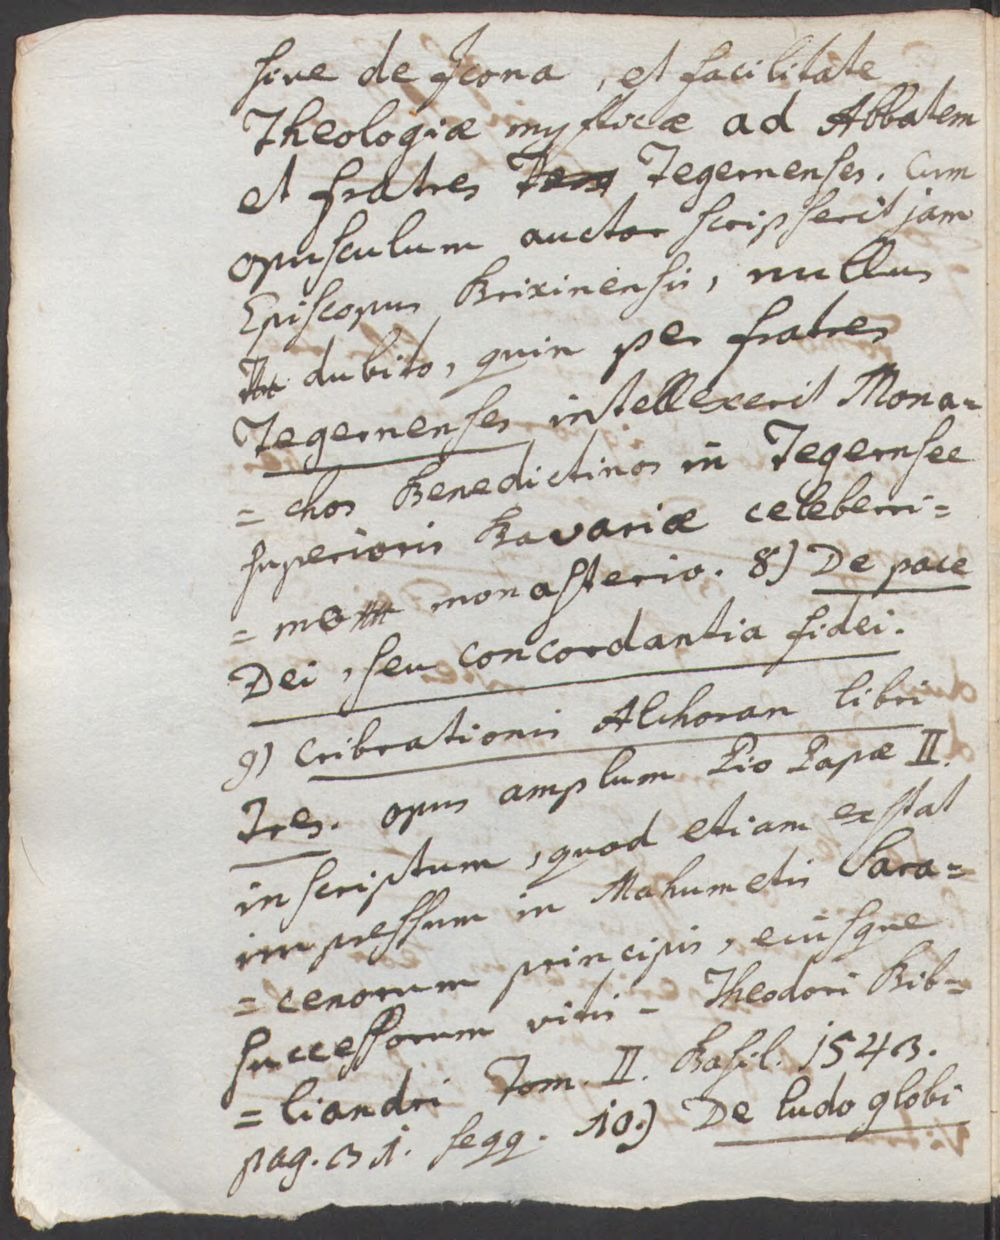 sive de Jcona, et facilitate
Theologiæ mysticæ ad Abbatem
et fratres Tegernenses. Cum
opusculum auctor scripserit jam
Episcopus Brixinensis, nullus
dubito, quin per fratres
Tegernenses intellexerit Mona=
= chos Benedictinos in Tegernsee
superioris Bavariæ celeberri=
= mo monasterio. 8) De pace
Dei, seu concordantia fidei.
9) Cribrationis Alchoran libri
Tres. opus amplum Pio Papæ II.
inscriptum, quod etiam exstat
impressum in Mahumetis Sara=
= cenorum principis, eiusque
successorum vitis - Theodori Bib-
= liandri Tom. II. Basil. 1543.
pag. 31. seqq. 10.) De ludo globi